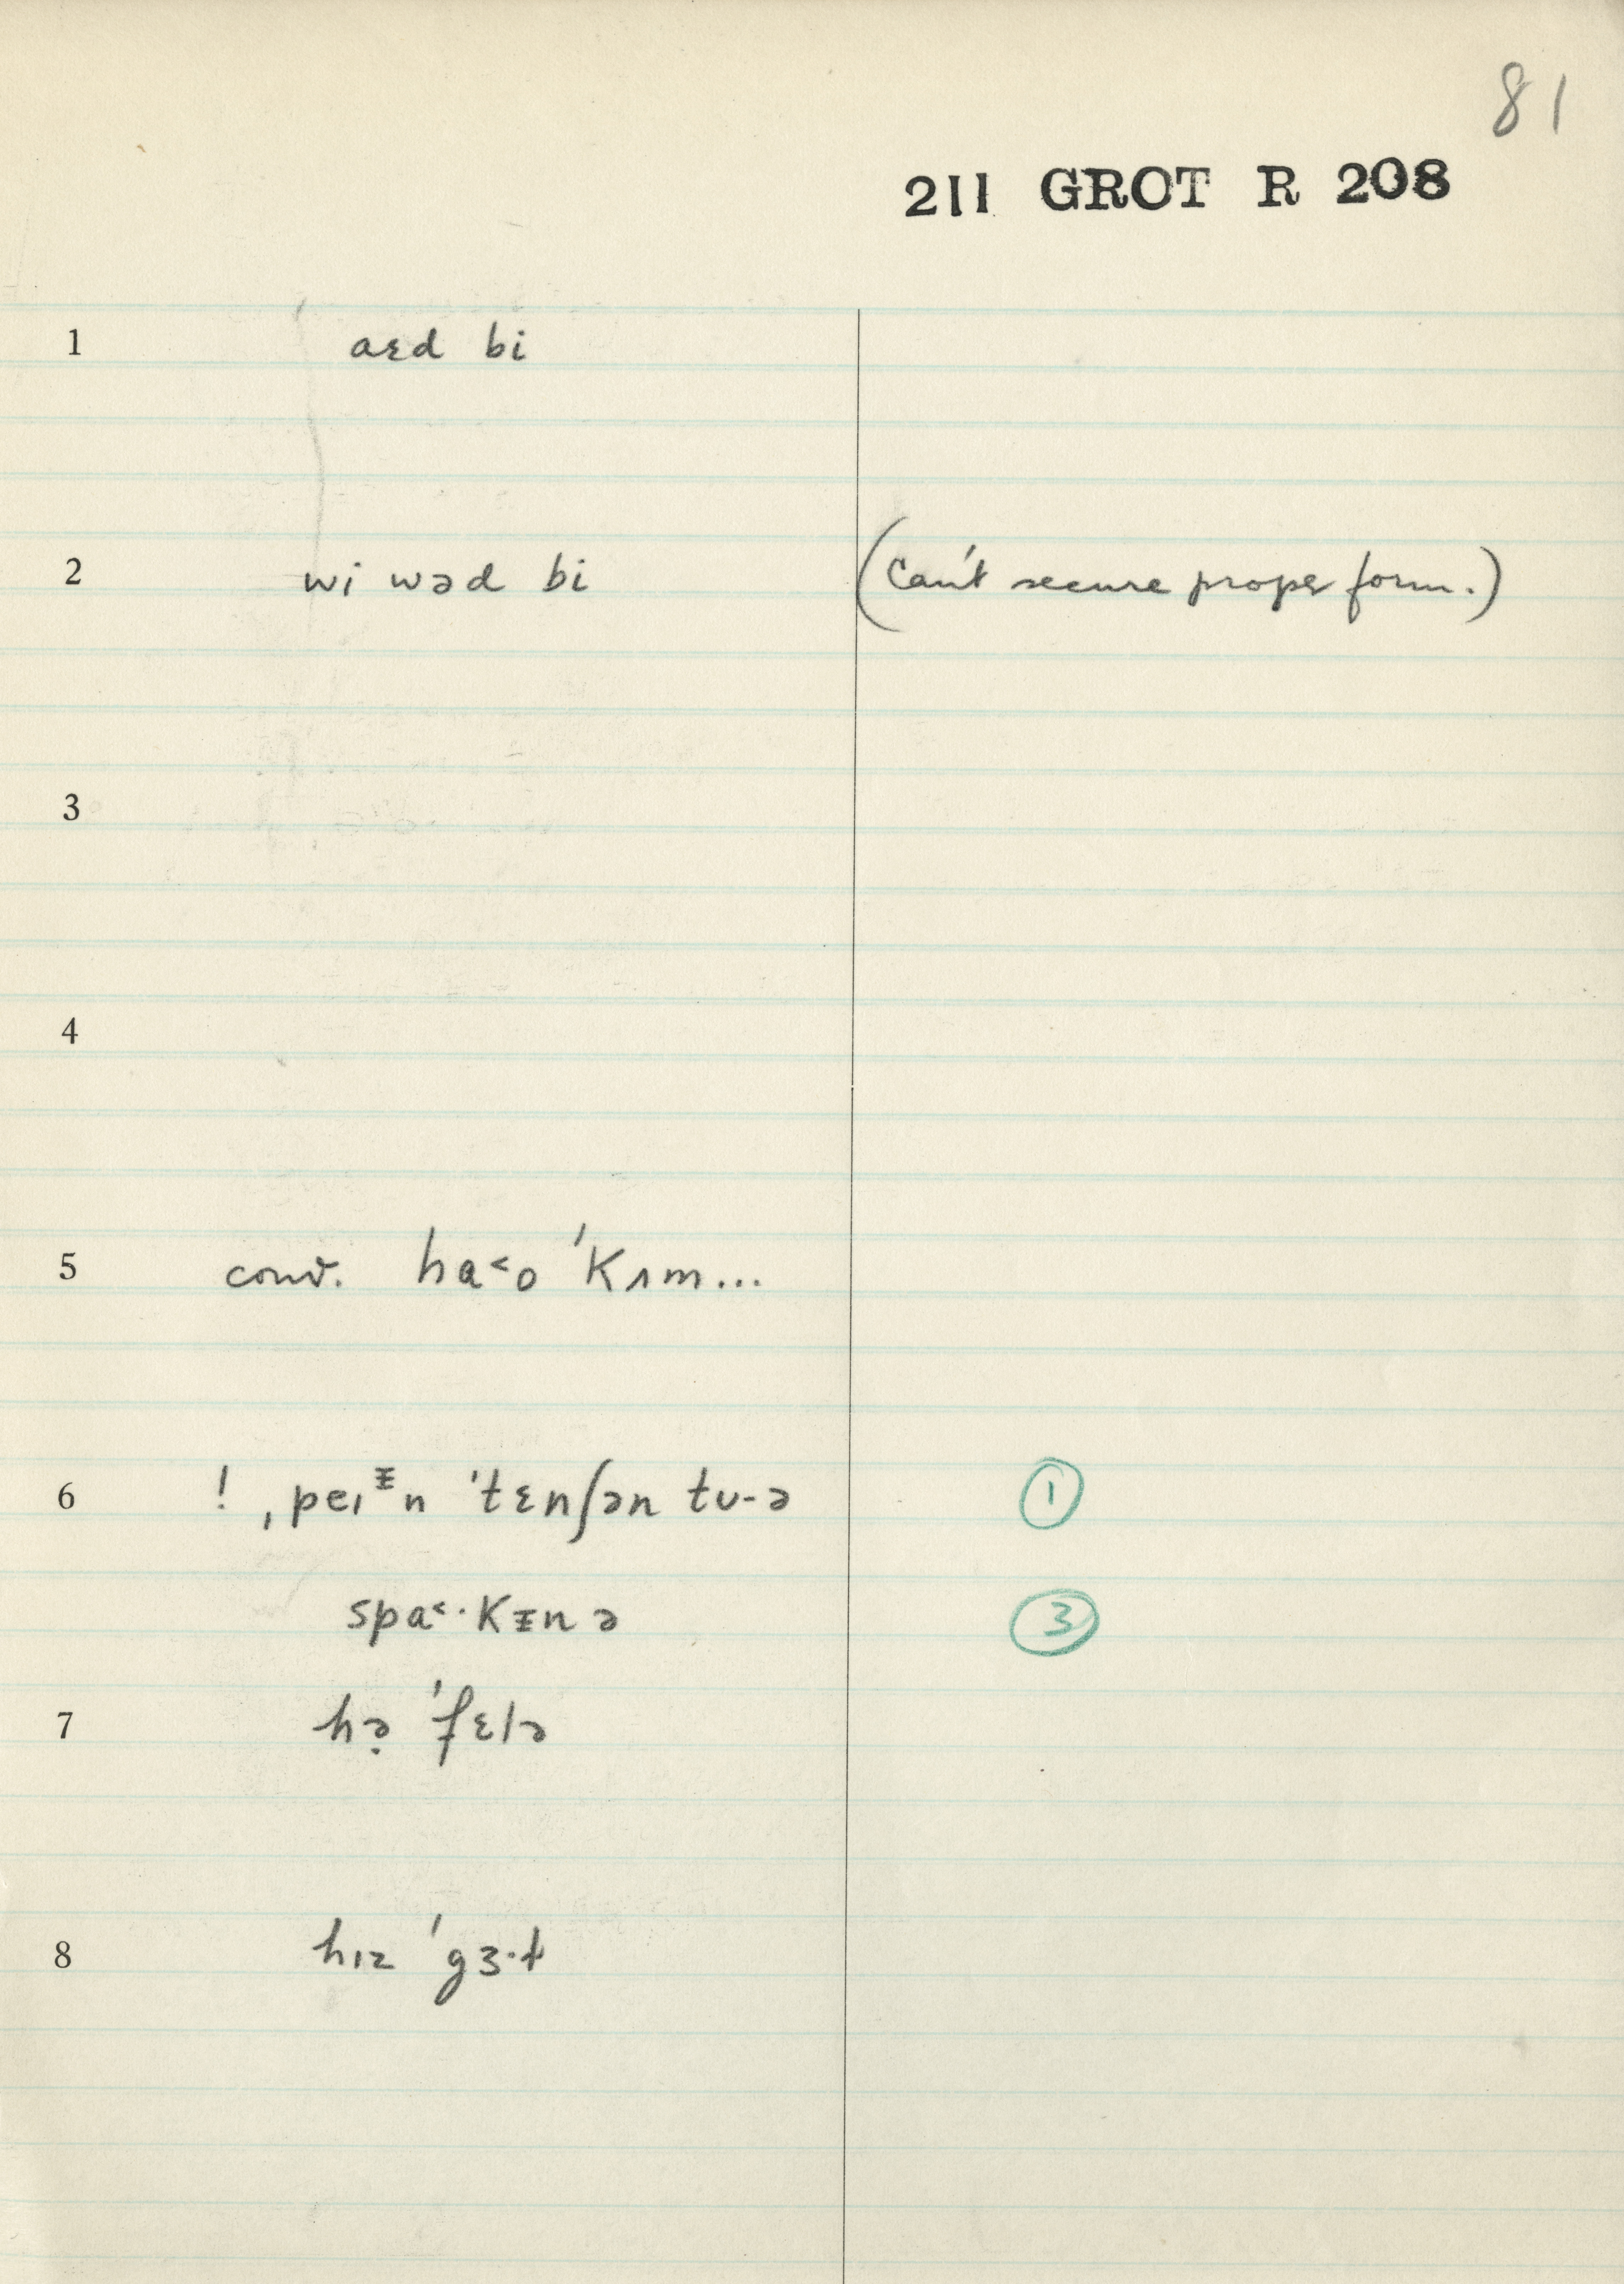 81
211 GROT R 208
1 aɛd bi
2 wi wəd bi (Can't secure proper form.)
3
4
5 conv. ha˂o ˈkʌm...
6 ! ˌpeɪᵻn ˈtɛnʃən tʊ-ə ①
spa˂·kᵻn ə ③
7 hə̣ ˈfɛlə
8 hɪz ˈgɜ·ɫ